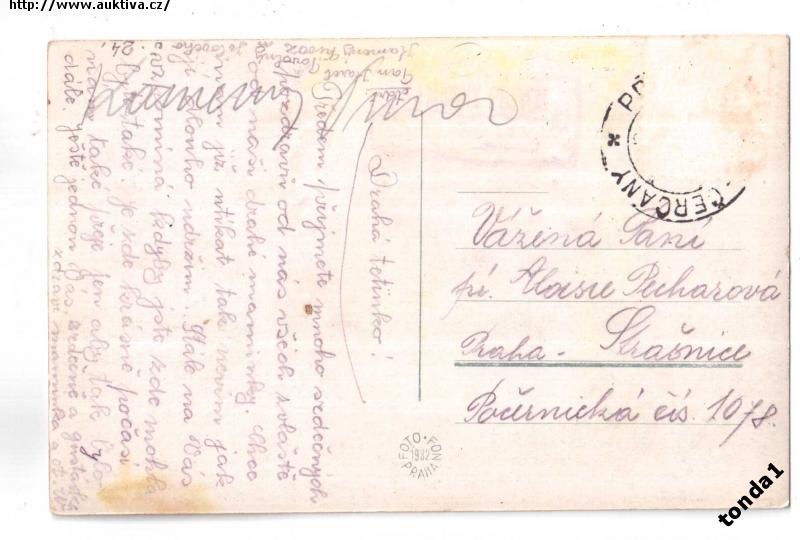 http://www.auktiva.cz/
Kamenný Přívoz
Drahá tetinko!
Předem přijmete mnoho srdečných
pozdravů od nás všech zvláště
od naší drahé maminky. Chce
nám již utíkat tak nevím jak
ji dlouho udržím. Stále na Vás
vzpomíná kdyby jste zde mohla
být také je zde krásné počasí
nám také přeje jen aby tak bylo
dále. Ještě jednou Vás srdečně a
zdraví maminka a
Vážená Paní
pí. Aloisie Pecharová
Praha - Strašnice
Počernická čís. 1078.
ČERČANY
FOTO-FON
1932
PRAHA
tonda1